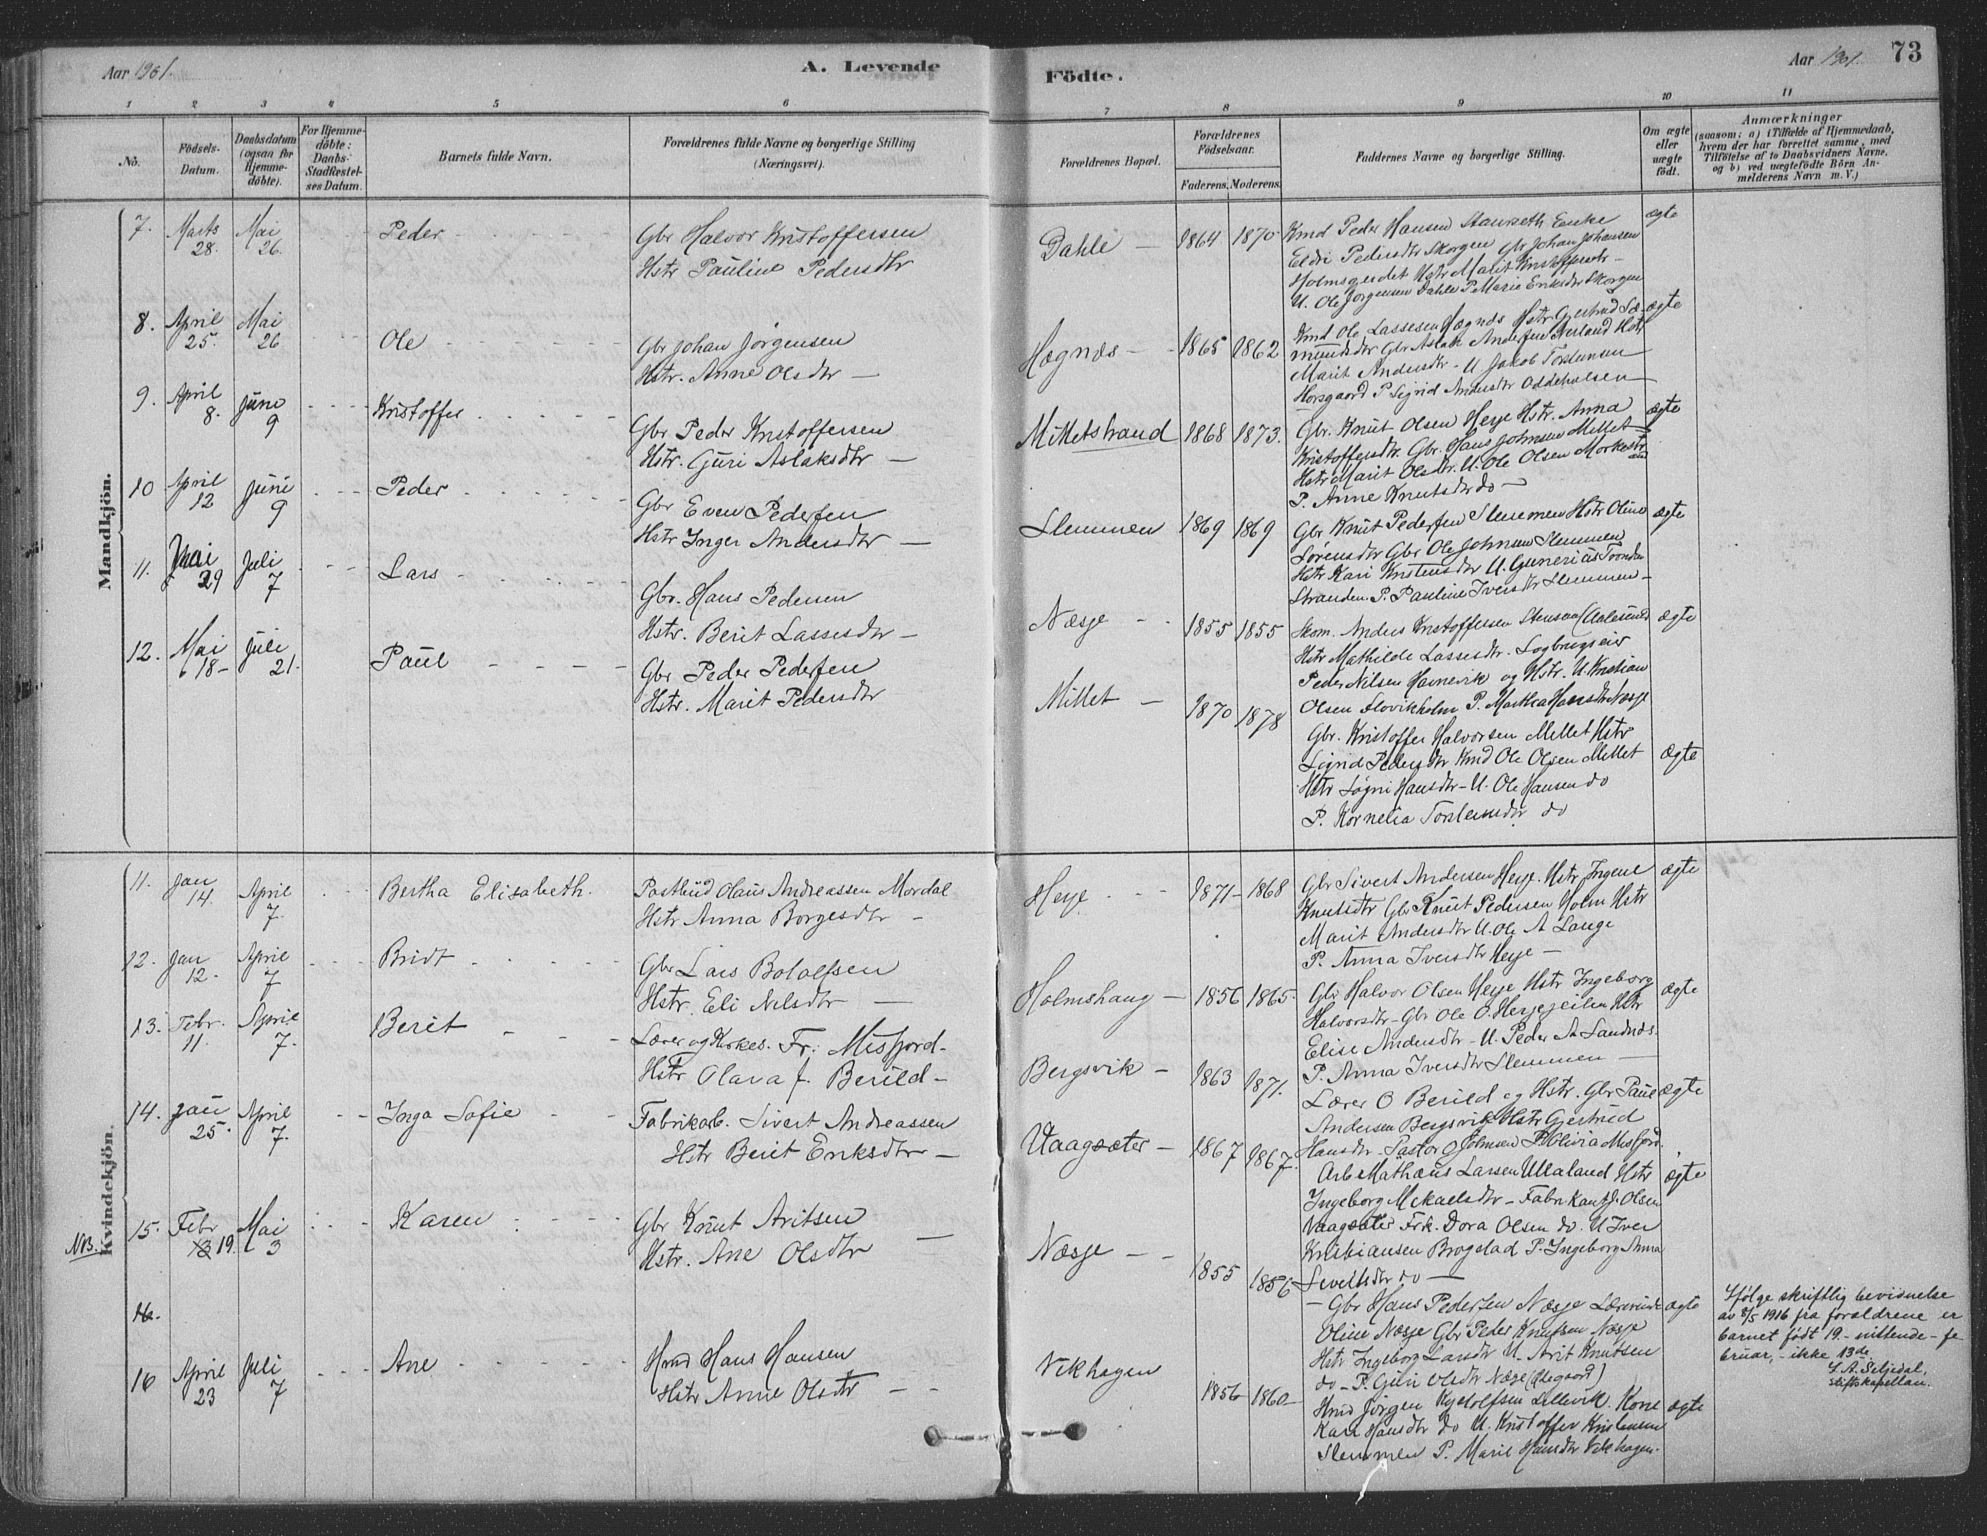 Aar 1901.
A. Levende
Födte.
Aar 1901.
73
1 2 3 4 5 6 7 8 9 10 11
No.
Födsels-Datum.
Daabsdatum (ogsaa for Hjemmedöbte).
For Hjemmedöbte: Daabs-Stadfæstelses Datum.
Barnets fulde Navn.
Forældrenes fulde Navne og borgerlige Stilling (Næringsvei).
Forældrenes Bopæl.
Forældrenes Födselsaar.
Faderens. Moderens.
Faddernes Navne og borgerlige Stilling.
Om ægte eller uægte födt.
Anmærkninger
(saasom: a) i Tilfælde af Hjemmedaab, hvem der har forrettet samme, med Tilföielse af to Daabsvidners Navne, og b) ved uægtefödte Börn Anmelderens Navn m. V.)
Mandkjön.
7. Marts 28. Mai 26. Peder
Gbr Halvor Kristoffersen
Hstr Pauline Pedersdtr
Dahle 1864 1870
Kmd Peder Hansen Stavseth Enke
Eldri Pedersdtr Skorgen Gbr Johan Johansen
Holmsgerdet Hstr Marit Kristoffersdtr
U. Ole Jørgensen Dahle P. Marie Eriksdtr Skorgen
ægte
8. April 25. Mai 26 Ole
Gbr Johan Jørgensen
Hstr. Anne Olsdtr
Hægnæs 1865 1862
Kmd Ole Lassesen Hægnæs Hstr. Gjertrud Sæ-
mundsdtr Gbr Aslak Andersen Nerland Hstr
Marit Andersdtr - U Jakob Torstensen
Horsgaard P Sigrid Andersdtr Oddeholsen
ægte
9. April 8. Juni 9 Kristoffer
Gbr Peder Kristoffersen
Hstr. Guri Aslaksdtr
Mittetstrand 1868 1873.
Gbr. Knut Olsen Heje Hstr. Anna
Kristoffersdtr. Gbr. Hans Johnsen Mittet
Hstr Marit Olsdtr. U. Ole Olsen Morkestr
P. Anne Knutsdtr do
ægte
10 April 12 Juni 9 Peder
Gbr Even Pedersen
Hstr Inger Andersdtr
Slemmen 1869 1869
Gbr Knut Pedersen Slemmen Hstr Oline
Sørensdtr Gbr Ole Johnsen Slemmen
Hstr Kari Kristensdtr U. Gunerius Tronsen
Stranden. P. Pauline Iversdtr Slemmen
ægte
11. Mai 29 Juli 7 Lars
Gbr. Hans Pedersen
Hstr. Berit Lassesdtr
Næsje 1855 1855
Skom. Anders Kristoffersen Stensaa (Aalesund
Hstr Mathilde Lassesdtr. Sogbrugseier
Peder Nilsen Havnevik og Hstr. U. Kristian
Olsen Flovikholm P. Marthea Hansdtr Næsje
ægte
12. Mai 18 Juli 21. Paul
Gbr Peder Pedersen
Hstr. Marit Pedersdtr
Mittet 1870 1878
Gbr. Kristoffer Halvorsen Mittet Hstr
Sigrid Pedersdtr Kmd Ole Olsen Mittet
Hstr Søgni Hansdtr - U. Ole Hansen do
P. Kornelia Torsteinsdtr do
ægte
Kvindekjön.
11. Jan 14. April 7. Bertha Elisabeth.
Postbud Olaus Andreassen Mordal
Hstr Anna Borgesdtr
Heje 1871 1868
Gbr Sivert Andersen Heje. Hstr Ingens
Knutsdtr Gbr Knut Pedersen Holm Hstr
Marit Andersdtr U. Ole A Lange
P. Anna Iversdtr Heje
ægte
12. Jan 12. April 7 Bridt
Gbr Lars Bolalfsen
Hstr. Eli Nilsdtr
Holmshaug 1856 1865.
Gbr Halvor Olsen Heje Hstr Ingeborg
Halvorsdtr - Gbr Ole O. Hesjejeilen Hstr
Elise Andersdtr - U. Peder A Sandnes.
P. Anna Iversdtr Slemmen
ægte
13. Febr. 11. April 7. Berit
Lærer og Kirkes. Fr. Misfjord
Hstr Olava J. Berild
Bergsvik 1863 1871.
Lærer O Berild og Hstr. Gbr Paul
Andersen Bergsvik Hstr Gjertrud
Hansdtr - Pastor O Johnsen P. Olivia Misfjord.
ægte
14. Jan 25. April 7. Inga Sofie
Fabrikarb. Sivert Andreassen
Hstr Berit Eriksdtr
Vaagsæter 1867 1867.
Arb Mathæus Larsen Ullaland Hstr
Ingeborg Mekaelsdtr - Fabrikant J. Olsen
Vaagsæter Frk. Dora Olsen do U Iver
Kristiansen Brogstad P. Ingeborg Anna
Severtsdtr do
ægte
NB.
15. Febr 13 19. Mai 3 Karen
Gbr Knut Aritsen
Hstr. Ane Olsdtr
Næsje 1855 1856
Gbr Hans Pedersen Næsje Lærerinde
Oline Næsje Gbr Peder Knutsen Næsje
Hstr Ingeborg Larsdtr U. Arit Knutsen
do - P. Guri Olsdtr Næsje
ægte
Ifølge skriftlig bevidnelse
av 8/5 1916 fra forældrene er
barnet født 19. - nittende - fe
bruar, - ikke 13de.
S. A. Seljedal,
stiftskapellan.
16.
16 April 23 Juli 7 Ane
Hmd Hans Hansen
Hstr Anne Olsdtr
Vikhagen 1856 1860
Hmd Jørgen Kjetolfsen Lillevik. Kone
Kari Hansdtr do U. Kristoffer Kristensen
Slemmen P. Marie Hansdtr Vikhagen.
ægte